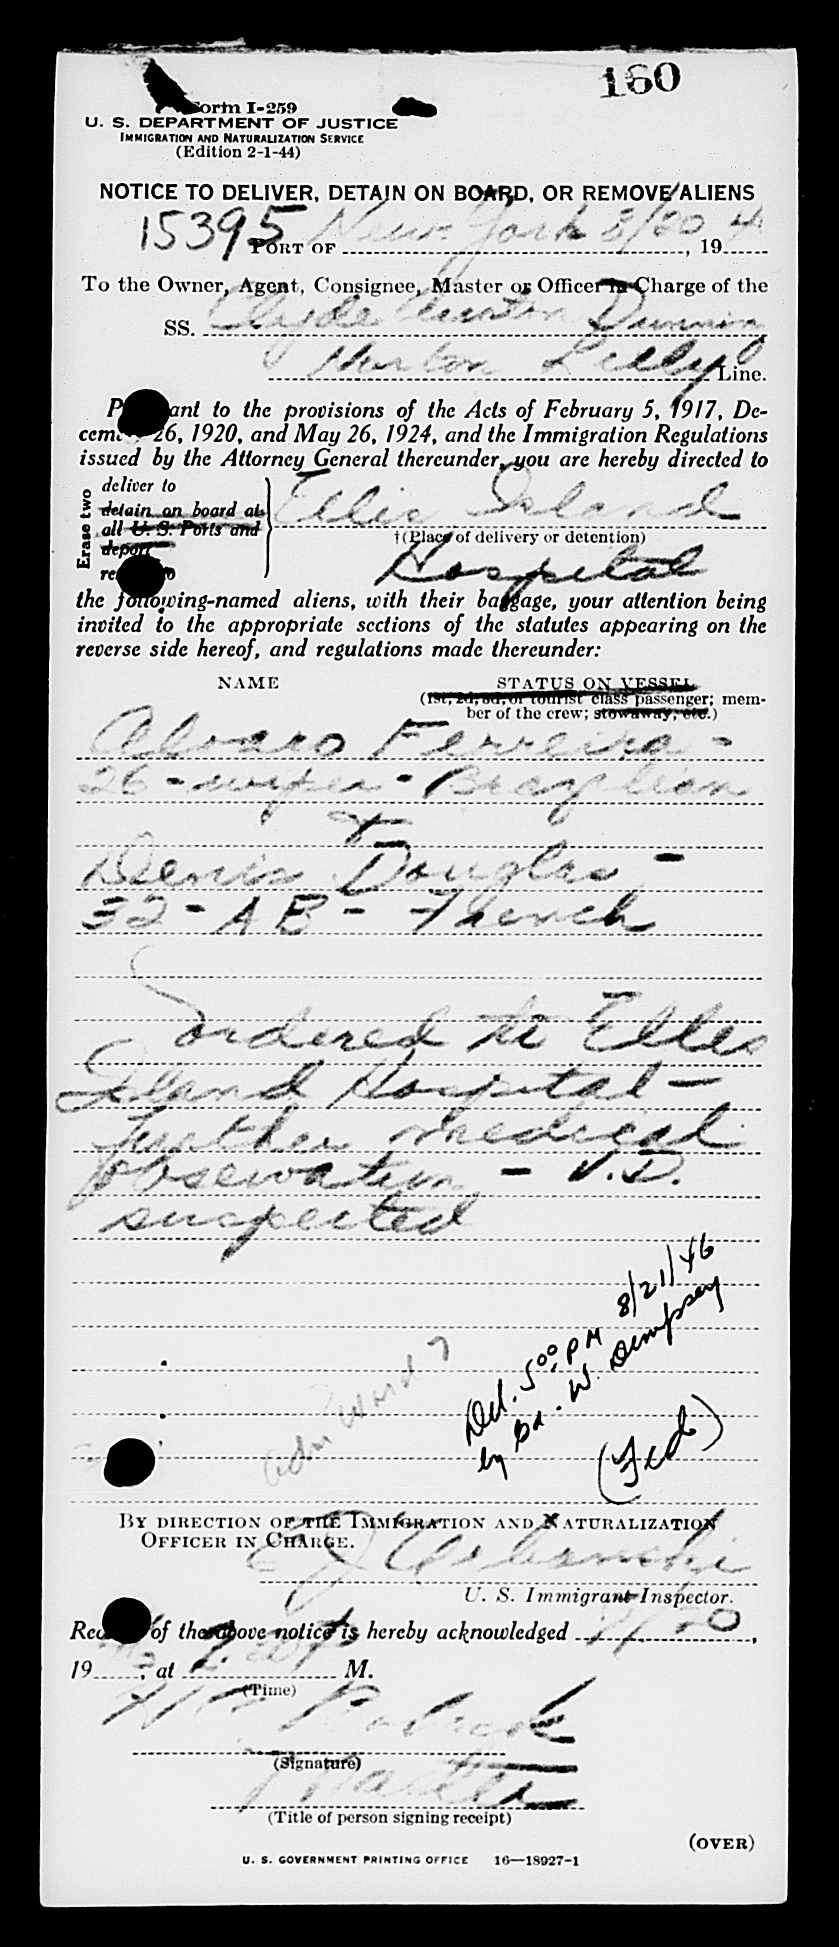 160
Form I-259
U. S. DEPARTMENT OF JUSTICE
IMMIGRATION AND NATURALIZATION SERVICE
(Edition 2-1-44)
NOTICE TO DELIVER, DETAIN ON BOARD, OR REMOVE ALIENS
15395 PORT OF New York 8/20, 19 4
To the Owner, Agent, Consignee, Master or Officer in Charge of the
SS. Clyde Austin Dunning
Norton Lilly Line.
Pursuant to the provisions of the Acts of February 5, 1917, De-
cember 26, 1920, and May 26, 1924, and the Immigration Regulations
issued by the Attorney General thereunder, you are hereby directed to
Erase two
deliver to
detain on board at
all U. S. Ports and
deport
remove to
Ellis Island
†(Place of delivery or detention)
Hospital
the following-named aliens, with their baggage, your attention being
invited to the appropriate sections of the statutes appearing on the
reverse side hereof, and regulations made thereunder:
NAME STATUS ON VESSEL
(1st, 2d, 3d, or tourist class passenger; mem-
ber of the crew; stowaway, etc.)
Alvaro Ferreira -
26 - wiper - Brazilian
+
Denis Douglas -
32 - AB - French
ordered to Ellis
Island Hospital -
further medical
observation - V.D.
suspected
Del. 5 00 PM 8/21/46
by Gd. W. Dempsey
(Fed)
Adm Ward 7
BY DIRECTION OF THE IMMIGRATION AND NATURALIZATION
OFFICER IN CHARGE.
U. S. Immigrant Inspector.
Receipt of the above notice is hereby acknowledged
19 , at M.
(Time)
(Signature)
Master
(Title of person signing receipt)
(OVER)
U. S. GOVERNMENT PRINTING OFFICE 16—18927-1